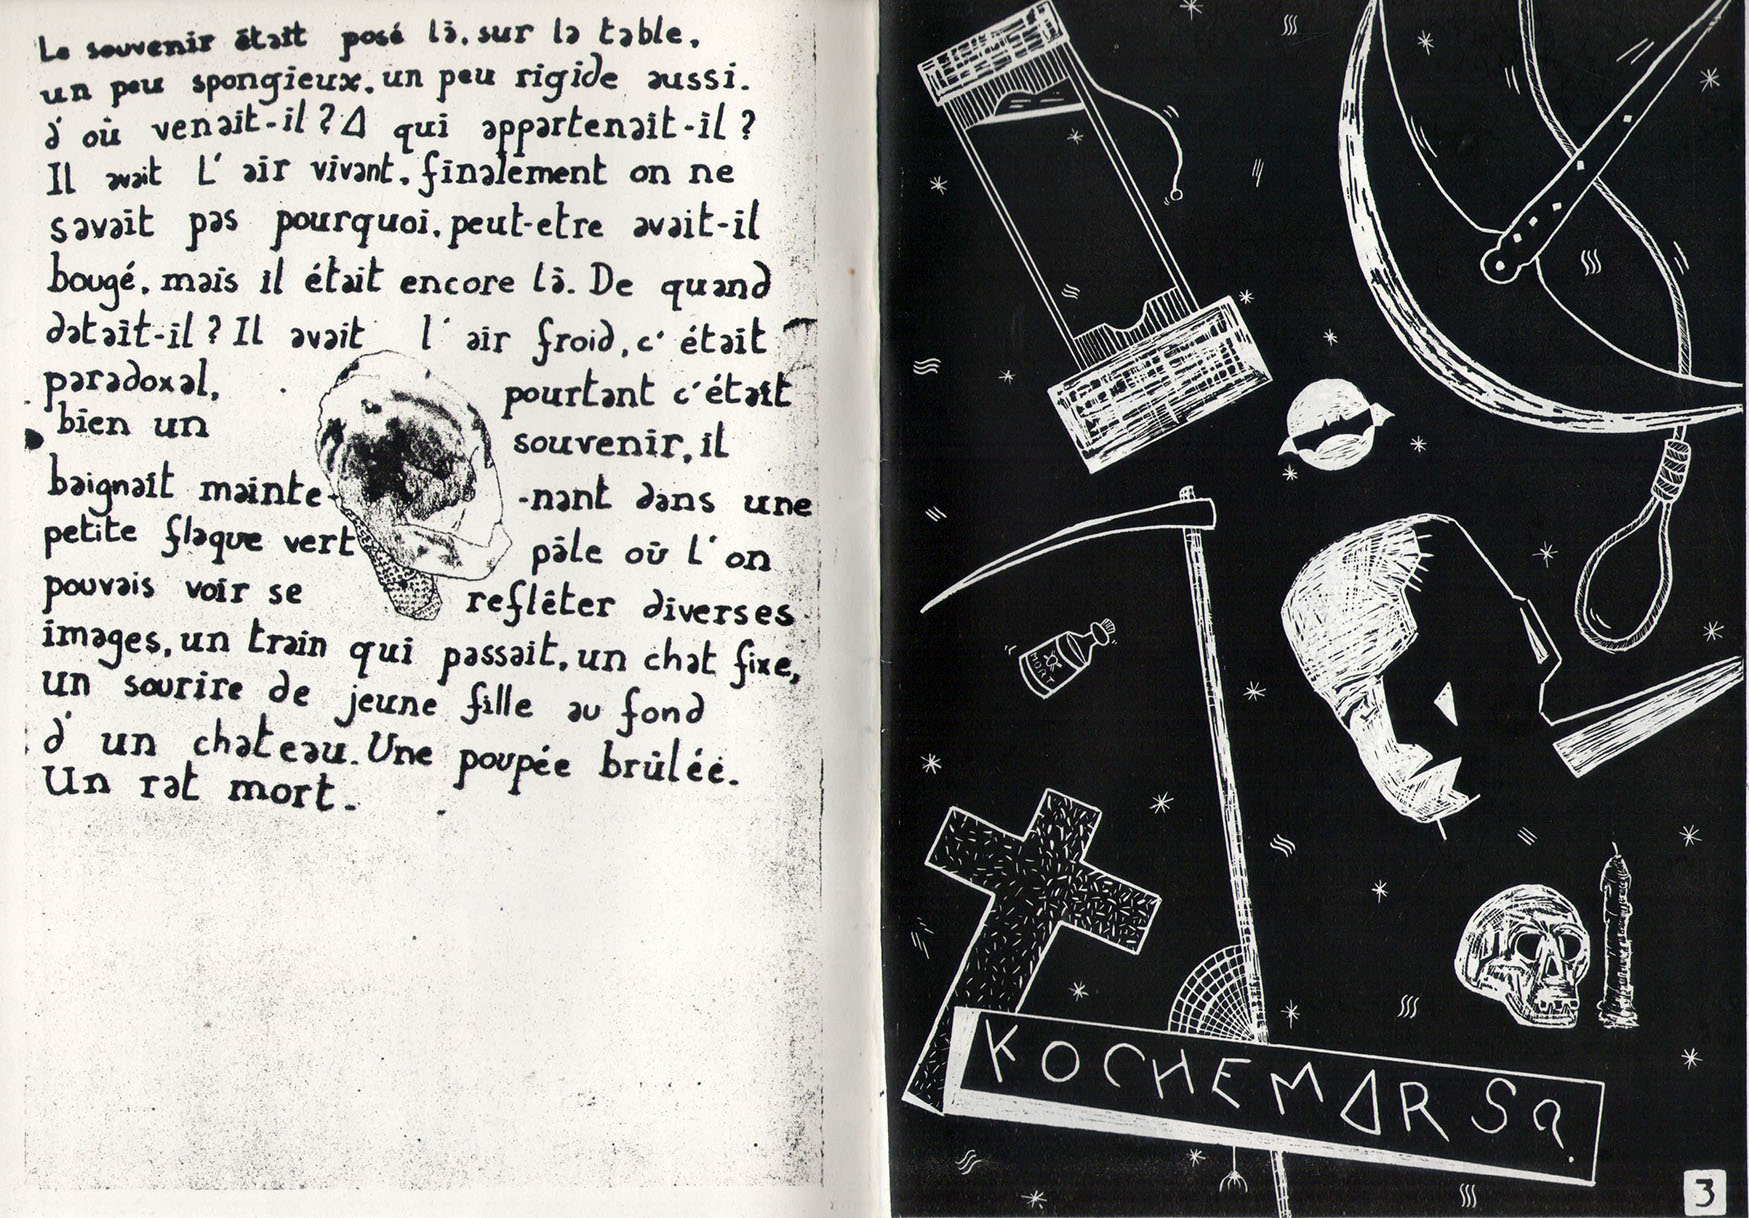 Le souvenir était posé là, sur la table,
un peu spongieux, un peu rigide aussi.
d'où venait-il? A qui appartenait-il?
Il avait L'air vivant, finalement on ne
savait pas pourquoi, peut-etre avait-il
bougé, mais il était encore là. De quand
datait-il? Il avait l'air froid, c'était
paradoxal, pourtant c'était
bien un souvenir, il
baignait mainte- -nant dans une
petite flaque vert pâle où L'on
pouvais voir se reflêter diverses
images, un train qui passait, un chat fixe,
un sourire de jeune fille au fond
d'un chateau. Une poupée brûlée.
Un rat mort.
MORT
KOCHEMARS?
3